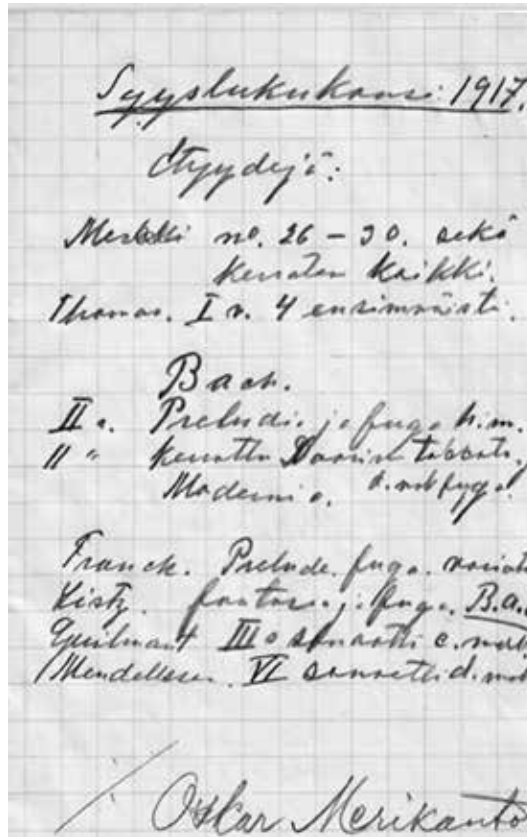 Syyslukukausi 1917
Etyydejä:
Merkki no. 26 – 30. sekä
kerraten kaikki.
Thomas. I v. 4 ensimmäistä.
Bach.
II v. Preludi ja fuga h.m.
II " kerrattu Doorin tokkata,
Moderni d. moll fuga.
Franck. Prelude. fuga. variat
Liszt. fantasi ja fuga. B.a.
Guilmant III sonaatti c. moll.
Mendelssohn. VI sonaatti d. moll
Oskar Merikanto